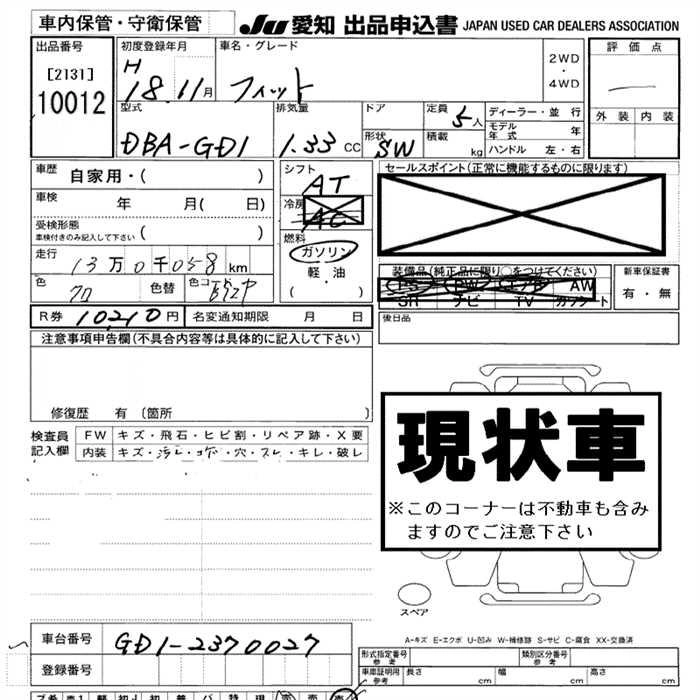 車内保管・守衛保管
JU 愛知 出品申込書 JAPAN USED CAR DEALERS ASSOCIATION
出品番号
[2131]
10012
初度登録年月
H
18.11月
車名・グレード
フィット
2WD
・
4WD
評価点
外装 内装
型式
DBA-GD1
排気量
1.33 CC
ドア
形状
SW
定員
5人
積載
kg
ディーラー・並行
モデル年式 年
ハンドル 左・右
車歴
自家用・( )
車検 年 月( 日)
受検形態
車検付きのみ記入して下さい ( )
走行
13万0千058km
色
クロ
色替
色コード
B92P
シフト
AT
冷房
AC
燃料
ガソリン
軽・油
( )
セールスポイント(正常に機能するものに限ります)
装備品(純正品に限り○をつけてください)
PS PW エアB AW
SR ナビ TV カワシート
新車保証書
有・無
R券 10210円
名変通知期限 月 日
後日品
注意事項申告欄(不具合内容等は具体的に記入して下さい)
修復歴 有 〔箇所 〕
検査員記入欄
FW キズ・飛石・ヒビ割・リペア跡・X要
内装 キズ・汚レ・コゲ・穴・スレ・キレ・破レ
現状車
※このコーナーは不動車も含み
ますのでご注意下さい
スペア
A-キズ E-エクボ U-凹み W-補修跡 S-サビ C-腐食 XX-交換済
車台番号
GD1-2370027
登録番号
形式指定番号
参考
類別区分番号
参考
車庫証明用
参考
長さ cm
幅 cm
高さ cm